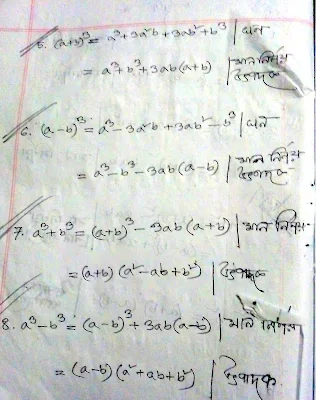 5. (a+b)³ = a³+3a²b+3ab²+b³ | ঘন
= a³+b³+3ab(a+b) | মান নির্ণয় উৎপাদক
6. (a-b)³ = a³-3a²b+3ab²-b³ | ঘন
= a³-b³-3ab(a-b) | মান নির্ণয় উৎপাদক
7. a³+b³ = (a+b)³-3ab(a+b) | মান নির্ণয়
= (a+b)(a²-ab+b²) | উৎপাদক
8. a³-b³ = (a-b)³+3ab(a-b) | মান নির্ণয়
= (a-b)(a²+ab+b²) | উৎপাদক